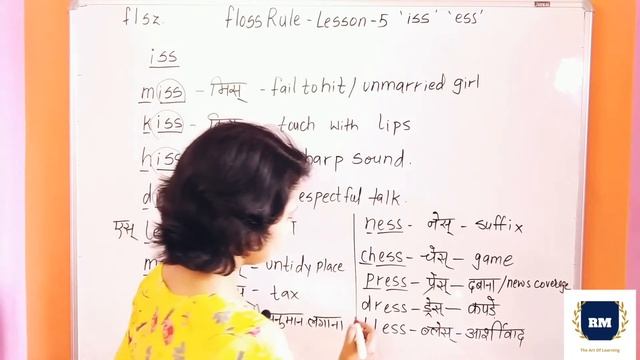 flsz. floss Rule - Lesson - 5 'iss' 'ess'
iss
miss - मिस् - fail to hit / unmarried girl
kiss - touch with lips
hiss sharp sound.
espectful talk.
एस्
- untidy place
- tax
लगाना
ness - नेस् - suffix
chess - चेस् - game
press - प्रेस् - दबाना / news coverage
dress - ड्रेस् - कपड़े
less - ब्लेस् - आर्शीवाद
RM
The Art Of Learning